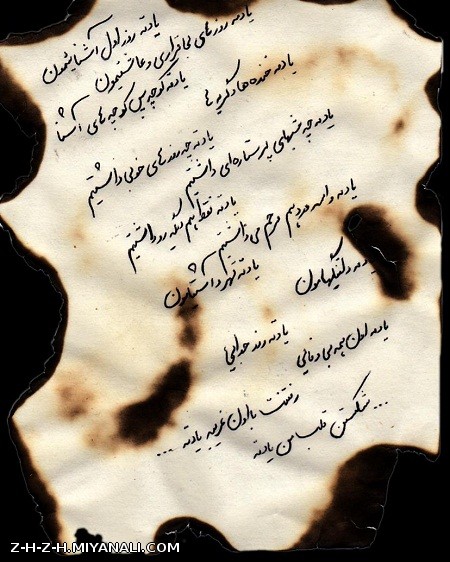 یادته روز اول آشناییمون
یادته روزهای بی قراری و عاشقیمون
یادته کوچه پس کوچه های آشنا
یادته خنده ها و گریه ها
یادته چه روزهای خوبی داشتیم
یادته چه شبهای پر ستاره ای داشتیم
یادته فقط هم دیگه رو داشتیم
یادته واسه درد هم مرهم می ذاشتیم
یادته قهر و آشتیامون
یادته دلتنگیهامون
یادته روز جدایی
یادته اون همه بی وفایی
رفتنت با اون غریبه یادته ...
شکستن قلب من یادته ...
Z-H-Z-H.MIYANALI.COM